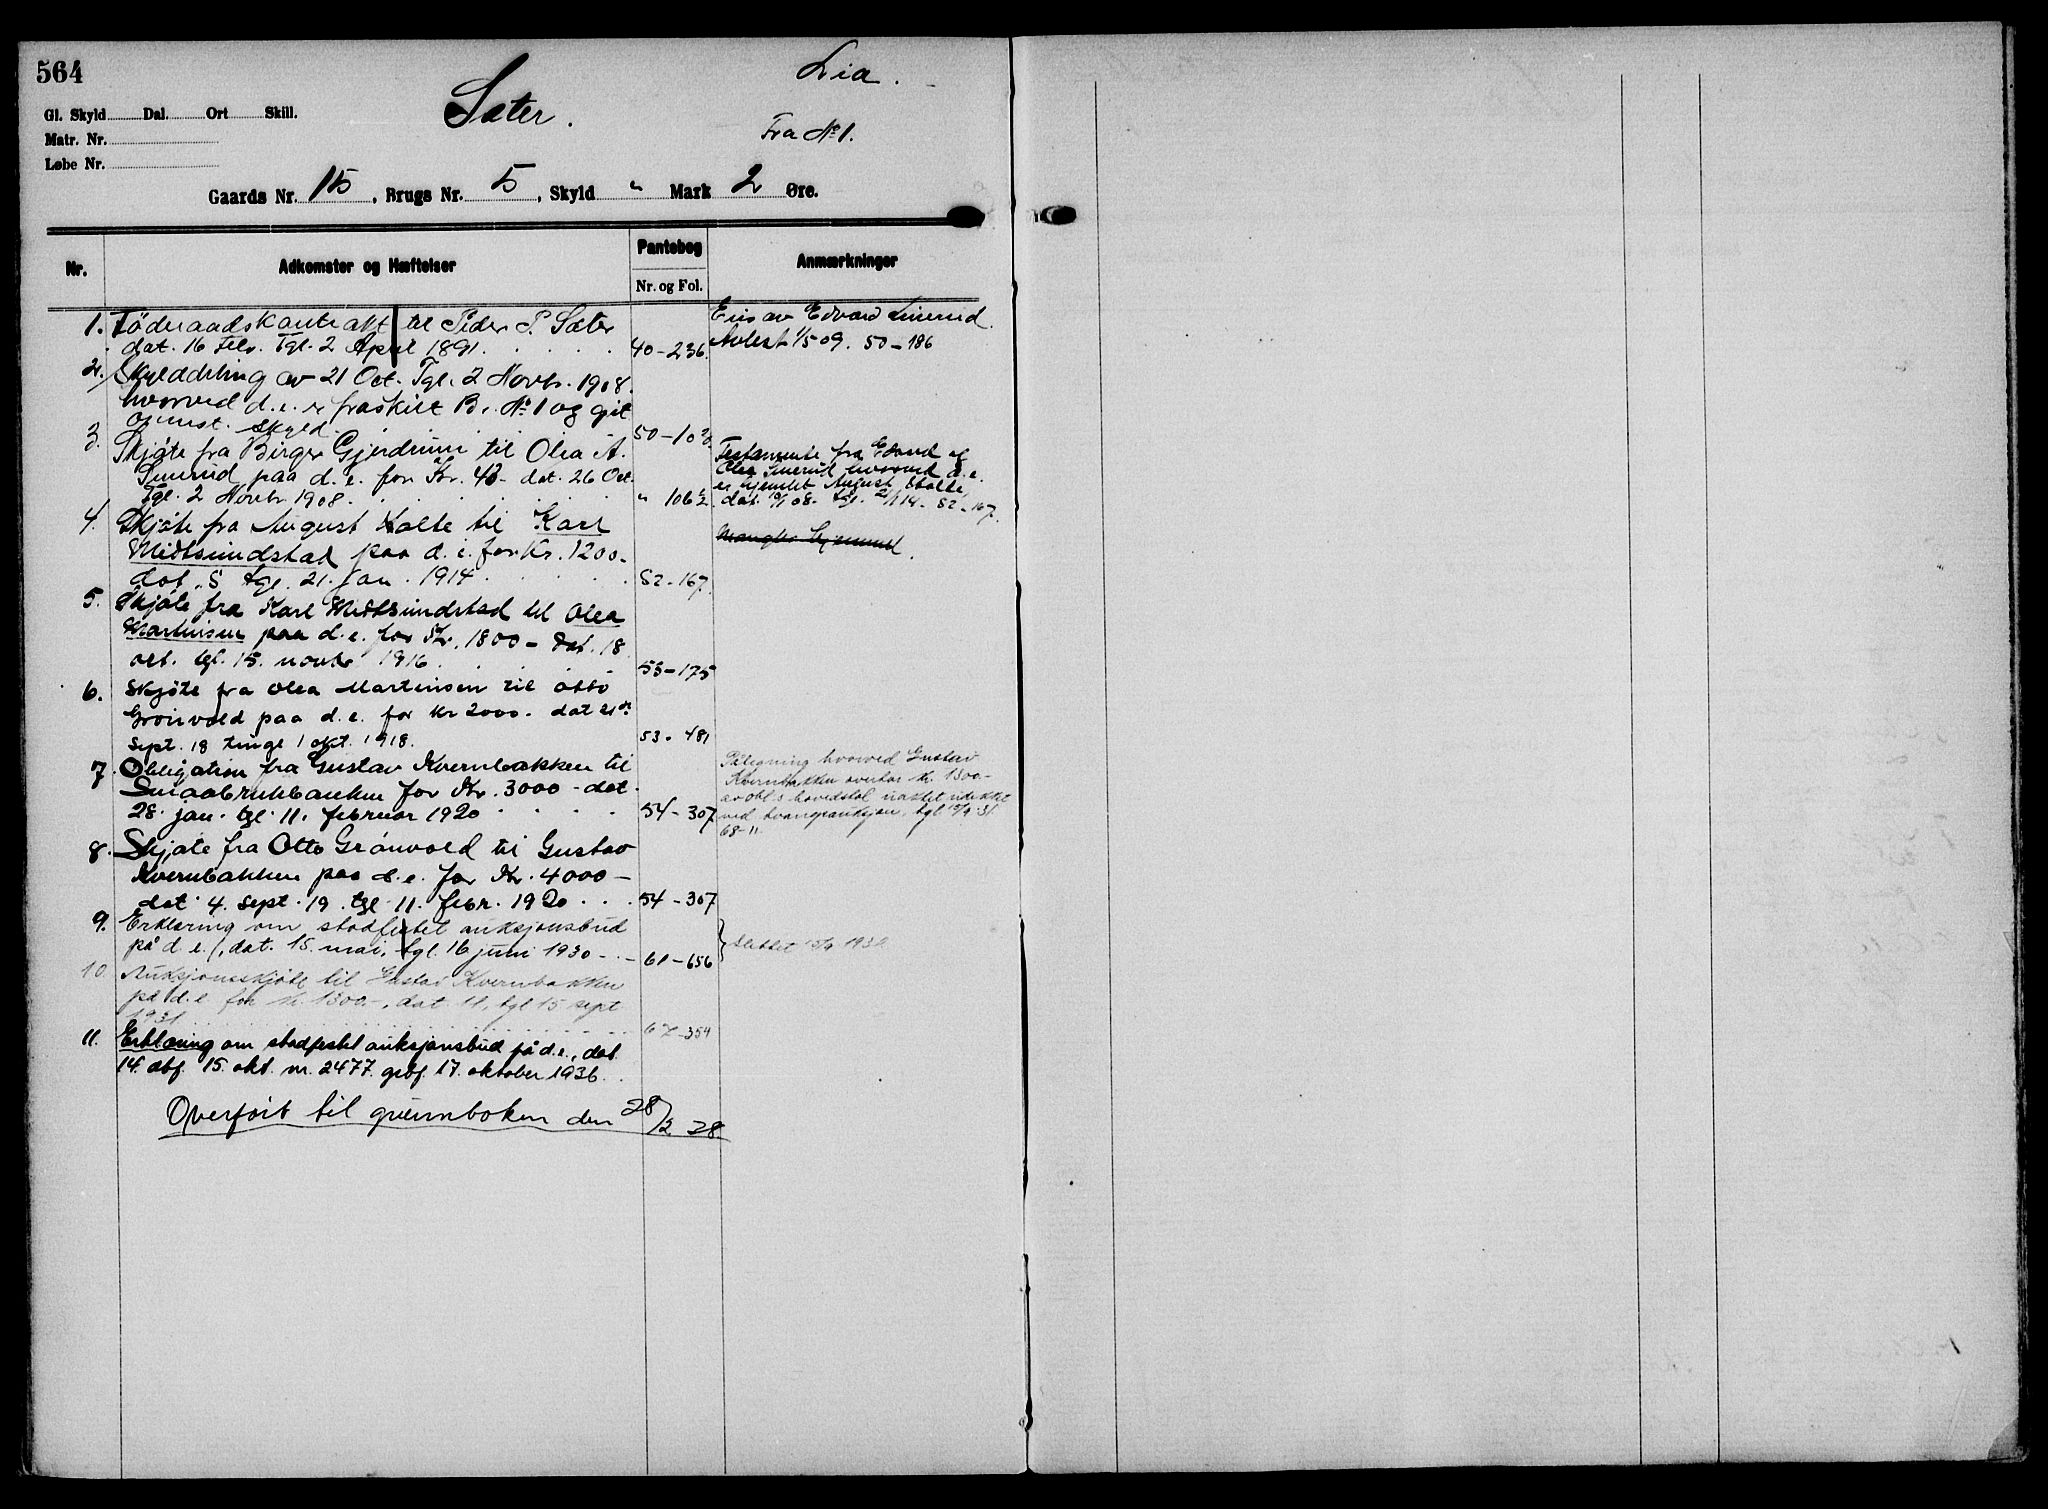 564
Lia.
Sæter.
Gl. Skyld Dal. Ort Skill.
Fra No 1.
Matr. Nr.
Løbe Nr.
Gaards Nr. 15, Brugs Nr. 5, Skyld " Mark 2 Øre.
Nr.
Adkomster og Hæftelser
Pantebog
Nr. og Fol.
Anmærkninger
1. Föderaadskontrakt til Peder P. Sæter
dat. 16 Febr. Tgl. 2 April 1891.
40-236.
Eies av Edvard
Avlest 1/5 09. 50-186
2. Skylddeling av 21 Oct. Tgl. 2 Novbr. 1908.
hvorved d.e. er fraskilt Br. No 1 og git
skyld.
50-10
3. Skjöte fra Birger Gjerdrum til Olea A.
paa d.e. for Kr. 40- dat. 26 Oct.
Tgl. 2 Novbr. 1908.
" 106
Testamente fra Edvard og
Olea hvorved d.e.
er hjemlet August
dat. 08. tgl. 21/1 14. 52-167.
4. Skjöte fra August til Karl
Midtsundstad paa d.e. for Kr. 1200-
dat. 5 tgl. 21. jan. 1914.
52-167.
mangler hjemmel.
5. Skjöte fra Karl Midtsundstad til Olea
Martinsen paa d.e. for Kr. 1800- dat. 18
oct. tgl. 15. novbr 1916.
53-175
6. Skjöte fra Olea Martinsen til Otto
Grönvold paa d.e. for kr 2000.- dat 21de
sept. 18 tingl 1 okt. 1918.
53-481
7. Obligation fra Gustav Kvernbakken til
Smaabrukbanken for Kr. 3000- dat.
28. jan. tgl. 11. februar 1920
54-307
Påtegning hvorved Gustav
Kvernbakken overtar kr. 1300-
av obl.s hovedstol uansett
ved tvangsauksjon. tgl 15/9 31.
68-11
8. Skjøte fra Otto Grönvold til Gustav
Kvernbakken paa d.e. for Kr. 4000-
dat. 4. sept. 19. tgl. 11. febr. 1920
54-307
9. Erklæring om stadfestet auksjonsbud
på d.e., dat. 15. mai, tgl. 16 juni 1930
61-656
Slettet 15/9 1931
10. Auksjonsskjöte til Gustav Kvernbakken
på d.e. for kr. 1300.-, dat 11, tgl 15 sept
1931
67-354
11. Erklæring om stadfestet auksjonsbud på d.e., dat.
14. dbf. 15. okt. nr. 2477. grbf. 17. oktober 1936.
Overfört til grunnboken den 28/2 28.